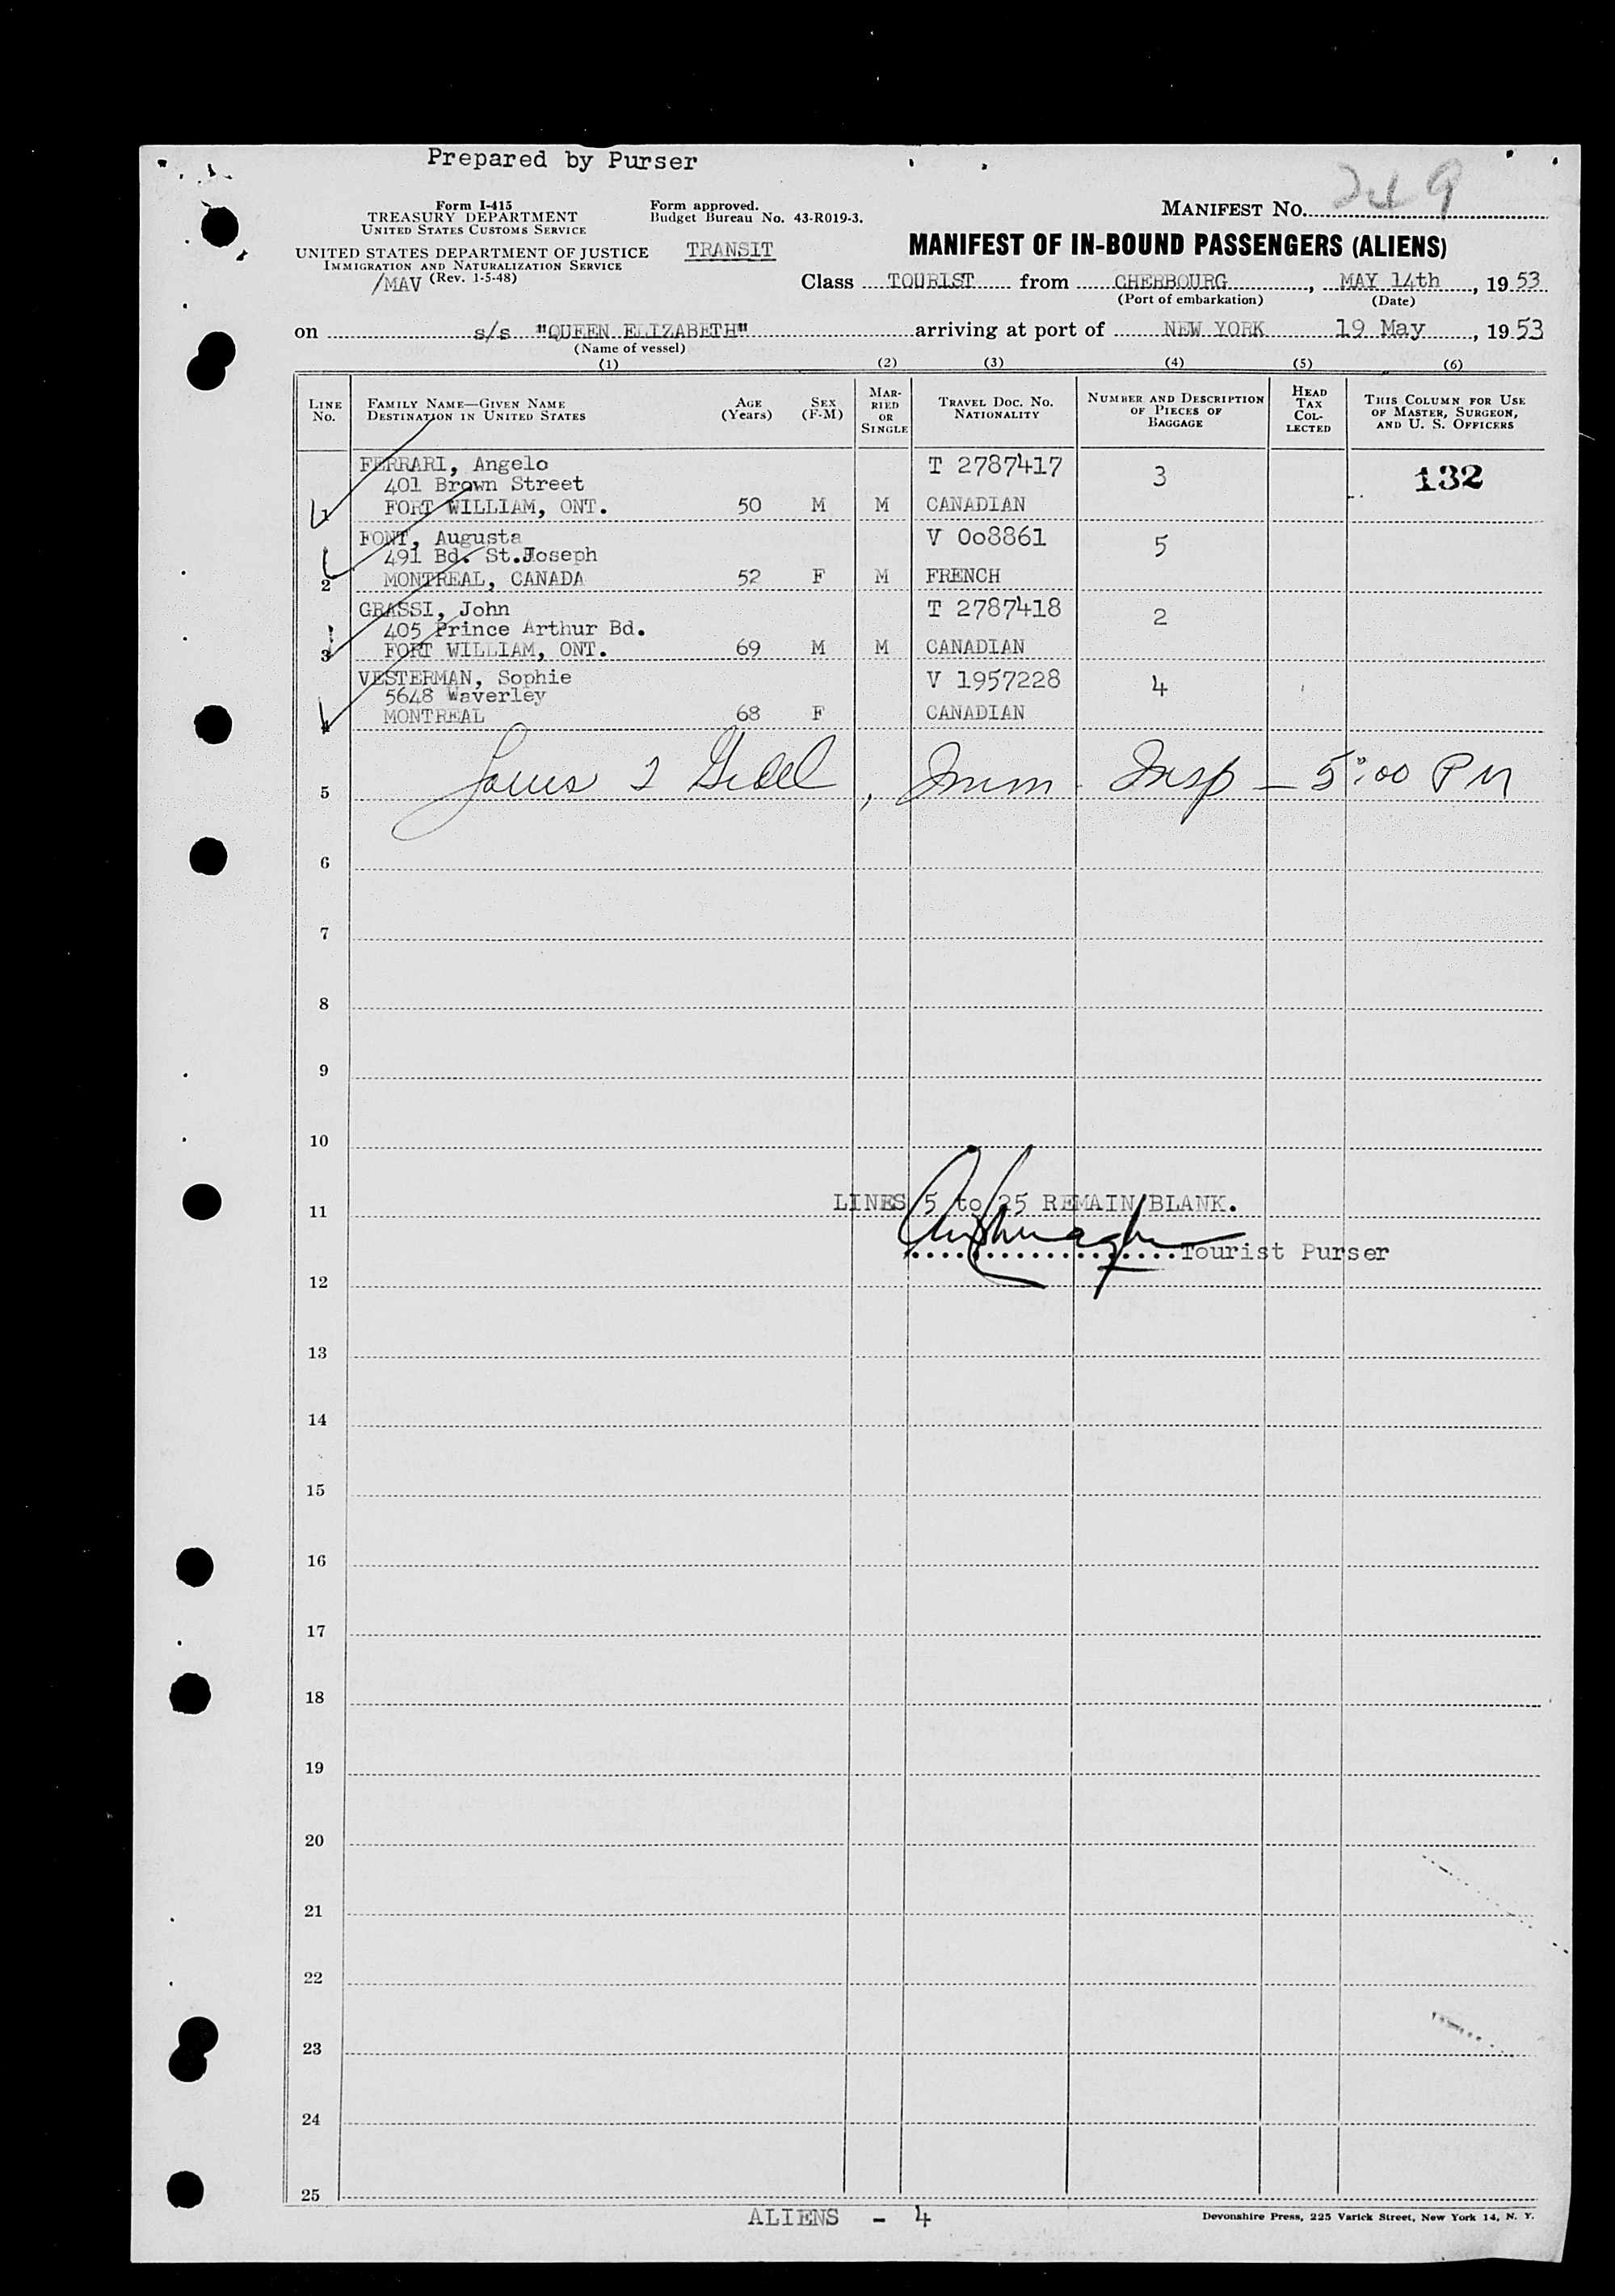 Prepared by Purser
249
Form I-415
TREASURY DEPARTMENT
UNITED STATES CUSTOMS SERVICE
Form approved.
Budget Bureau No. 43-R019-3.
MANIFEST No.
UNITED STATES DEPARTMENT OF JUSTICE
IMMIGRATION AND NATURALIZATION SERVICE
/MAV (Rev. 1-5-48)
TRANSIT
MANIFEST OF IN-BOUND PASSENGERS (ALIENS)
Class TOURIST from CHERBOURG, MAY 14th, 1953
(Port of embarkation) (Date)
on s/s "QUEEN ELIZABETH" arriving at port of NEW YORK 19 May, 1953
(Name of vessel)
(1) (2) (3) (4) (5) (6)
LINE No.
FAMILY NAME—GIVEN NAME
DESTINATION IN UNITED STATES
AGE (Years)
SEX (F-M)
MARRIED OR SINGLE
TRAVEL DOC. NO.
NATIONALITY
NUMBER AND DESCRIPTION OF PIECES OF BAGGAGE
HEAD TAX COLLECTED
THIS COLUMN FOR USE OF MASTER, SURGEON, AND U. S. OFFICERS
FERRARI, Angelo T 2787417 3 132
401 Brown Street
1 FORT WILLIAM, ONT. 50 M M CANADIAN
FONT, Augusta V 008861 5
491 Bd. St.Joseph
2 MONTREAL, CANADA 52 F M FRENCH
GRASSI, John T 2787418 2
405 Prince Arthur Bd.
3 FORT WILLIAM, ONT. 69 M M CANADIAN
VESTERMAN, Sophie V 1957228 4
5648 Waverley
4 MONTREAL 68 F CANADIAN
5 Imm. Insp - 5:00 PM
6
7
8
9
10
LINES 5 to 25 REMAIN BLANK.
11
Tourist Purser
12
13
14
15
16
17
18
19
20
21
22
23
24
25
ALIENS - 4
Devonshire Press, 225 Varick Street, New York 14, N. Y.